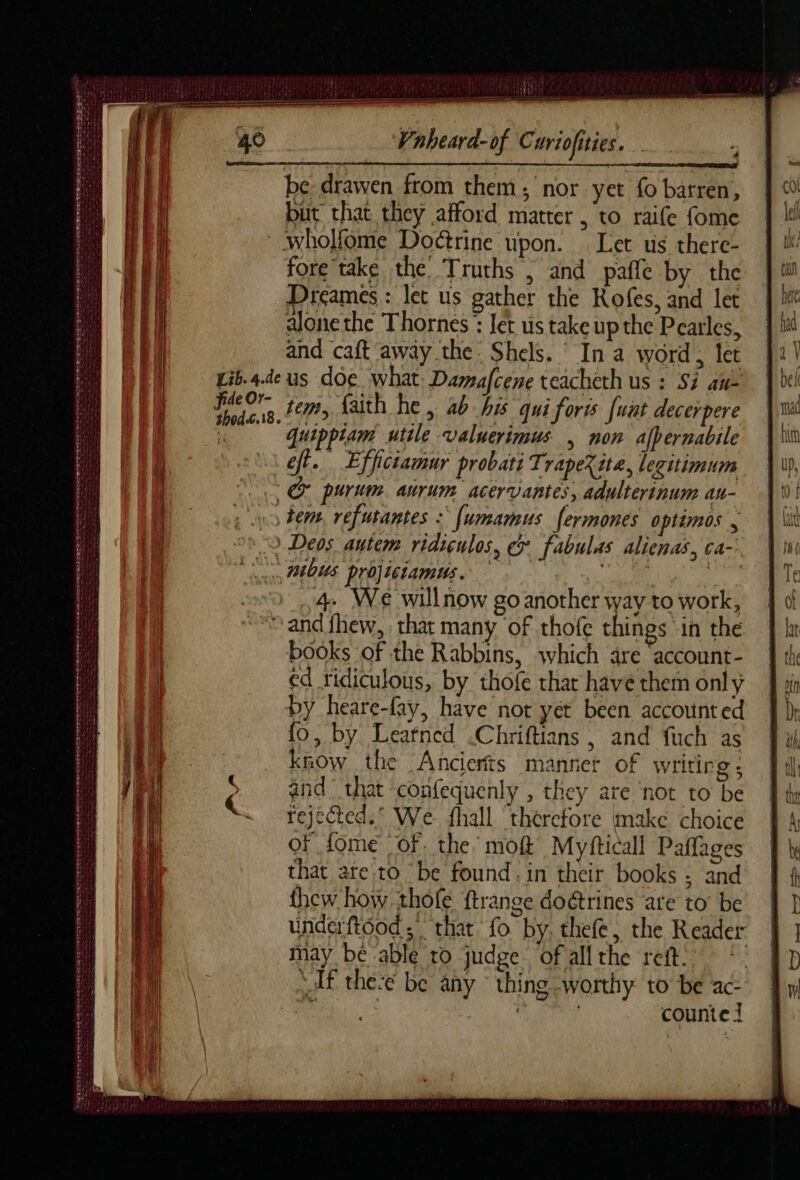 40 Vnheard-of Curioſities.
be drawen from them; nor yet ſo barren,
but that they afford matter, to raiſe ſome
wholſome Doctrine upon. Let us there-
fore take the Truths, and paſſe by the
Dreames: let us gather the Roſes, and let
alone the Thornes: let us take up the Pearles,
and caſt away the Shels. In a word, let
Lib. 4. de us doe what Damaſcene teacheth us: Si au-
fide Or- tem, ſaith he, ab his qui foris ſunt decerpere
thod. c. 18. quippiam utile valuerimus, non aſpernabile
eſt. Efficiamur probati Trapezitæ, legitimum
& purum aurum acervantes, adulterinum au-
tem refutantes: ſumamus ſermones optimos;
Deos autem ridiculos, & fabulas alienas, ca-
nibus projiciamus.
4. We will now go another way to work,
and ſhew, that many of thoſe things in the
books of the Rabbins, which are account-
ed ridiculous, by thoſe that have them only
by heare-ſay, have not yet been accounted
ſo, by Learned Chriſtians, and ſuch as
know the Ancients manner of writing;
and that conſequenly, they are not to be
rejected. We ſhall therefore make choice
of ſome of the moſt Myſticall Paſſages
that are to be found in their books; and
ſhew how thoſe ſtrange doctrines are to be
underſtood; that ſo by theſe, the Reader
may be able to judge of all the reſt.
If there be any thing worthy to be ac-
counted